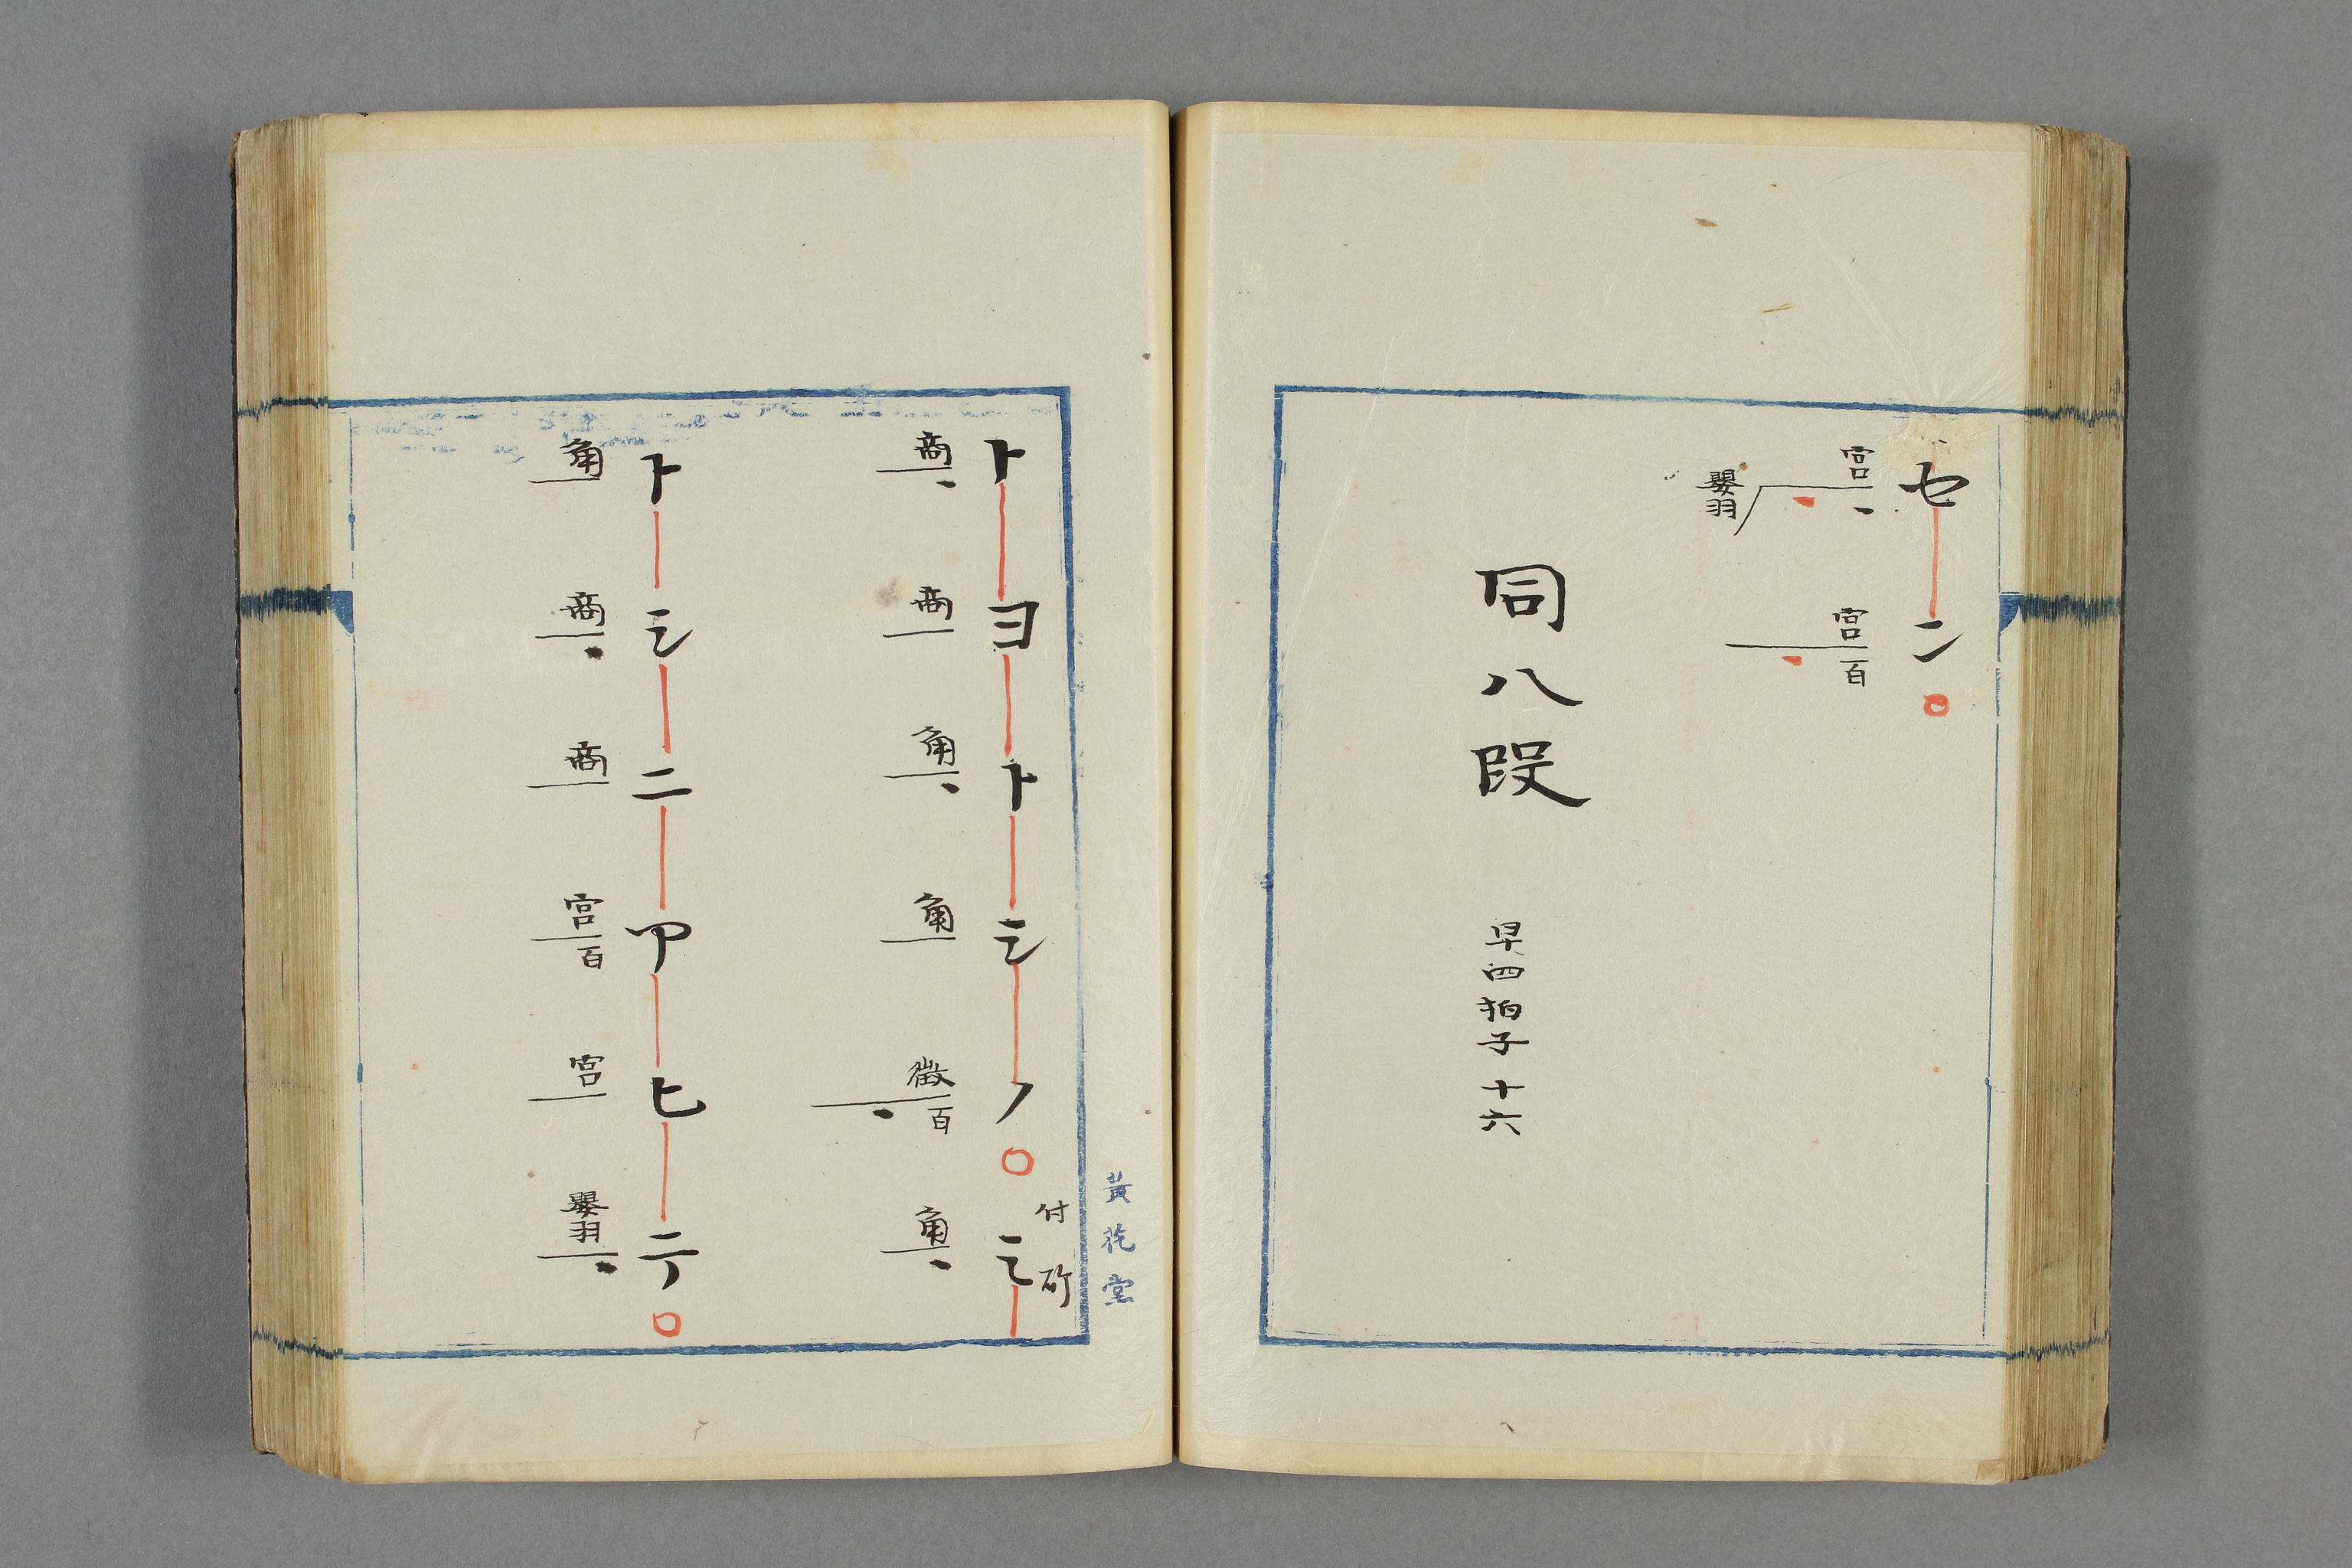 セン
宮 宮百
嬰羽
同八段 早四拍子 十六
黄花堂
付 所
トヨトミノ ミ
商 商 角 角 徴百 角
トミニアヒテ
角 商 商 宮百 宮 嬰羽